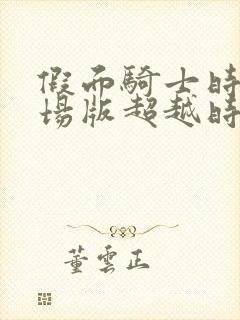 假面騎士時
場版超越時
董雲正